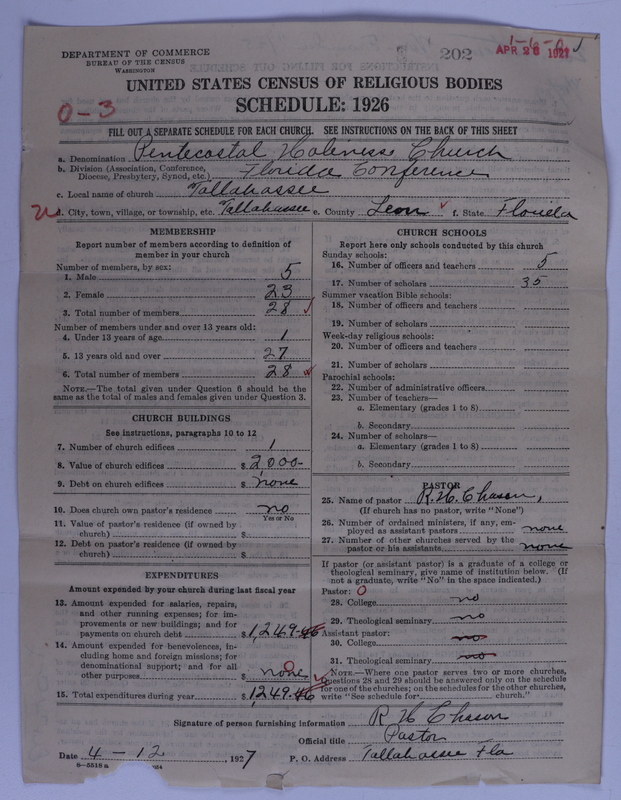 DEPARTMENT OF COMMERCE
BUREAU OF THE CENSUS
WASHINGTON
202
APR 28 1927
UNITED STATES CENSUS OF RELIGIOUS BODIES
SCHEDULE: 1926
0-3
FILL OUT A SEPARATE SCHEDULE FOR EACH CHURCH. SEE INSTRUCTIONS ON THE BACK OF THIS SHEET
a. Denomination Pentecostal Holiness Church
b. Division (Association, Conference, Diocese, Presbytery, Synod, etc.) Florida Conference
c. Local name of church Tallahassee
d. City, town, village, or township, etc. Tallahassee e. County Leon f. State Florida
MEMBERSHIP
Report number of members according to definition of
member in your church
Number of members, by sex:
1. Male 5
2. Female 23
3. Total number of members 28
Number of members under and over 13 years old:
4. Under 13 years of age 1
5. 13 years old and over 27
6. Total number of members 28
NOTE.—The total given under Question 6 should be
same as the total of males and females given under Question 3.
CHURCH BUILDINGS
See instructions, paragraphs 10 to 12
7. Number of church edifices 1
8. Value of church edifices $ 2,000-
9. Debt on church edifices $ none
10. Does church own pastor's residence no
Yes or No
11. Value of pastor's residence (if owned by
church) $
12. Debt on pastor's residence (if owned by
church) $
EXPENDITURES
Amount expended by your church during last fiscal year
13. Amount expended for salaries, repairs,
and other running expenses; for im-
provements or new buildings; and for
payments on church debt $ 1,249.46
14. Amount expended for benevolences, in-
cluding home and foreign missions; for
denominational support; and for all
other purposes $ none
15. Total expenditures during year $ 1249.46
CHURCH SCHOOLS
Report here only schools conducted by this church
Sunday schools:
16. Number of officers and teachers 5
17. Number of scholars 35
Summer vacation Bible schools:
18. Number of officers and teachers
19. Number of scholars
Week-day religious schools:
20. Number of officers and teachers
21. Number of scholars
Parochial schools:
22. Number of administrative officers
23. Number of teachers—
a. Elementary (grades 1 to 8)
b. Secondary
24. Number of scholars—
a. Elementary (grades 1 to 8)
b. Secondary
PASTOR
25. Name of pastor R. H. Chason,
(If church has no pastor, write "None")
26. Number of ordained ministers, if any, em-
ployed as assistant pastors none
27. Number of other churches served by the
pastor or his assistants none
If pastor (or assistant pastor) is a graduate of a college or
theological seminary, give name of institution below. (If
not a graduate, write "No" in the space indicated.)
Pastor: 0
28. College no
29. Theological seminary no
Assistant pastor:
30. College no
31. Theological seminary no
NOTE.—Where one pastor serves two or more churches,
Questions 28 and 29 should be answered only on the schedule
for one of the churches; on the schedules for the other churches,
write "See schedule for church."
Signature of person furnishing information R H Chason
Official title Pastor
Date 4-12, 1927 P. O. Address Tallahassee Fla
8—5518 a